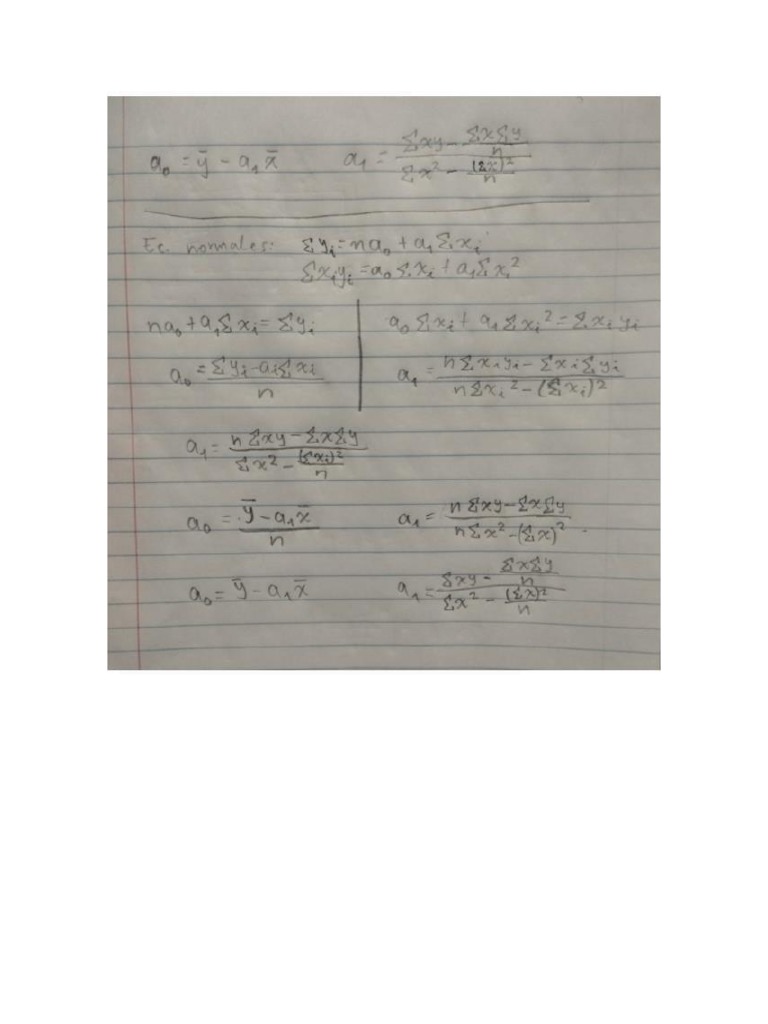 a₀ = ȳ - a₁x̄    a₁ = (Σxy - (ΣxΣy)/n) / (Σx² - (Σx)²/n)
Ec. normales: Σyᵢ = na₀ + a₁Σxᵢ
Σxᵢyᵢ = a₀Σxᵢ + a₁Σxᵢ²
na₀ + a₁Σxᵢ = Σyᵢ    a₀Σxᵢ + a₁Σxᵢ² = Σxᵢyᵢ
a₀ = (Σyᵢ - aᵢΣxᵢ) / n    a₁ = (nΣxᵢyᵢ - ΣxᵢΣyᵢ) / (nΣxᵢ² - (Σxᵢ)²)
a₁ = (nΣxy - ΣxΣy) / (Σx² - (Σxᵢ)²/n)
a₀ = (ȳ - a₁x̄) / n    a₁ = (nΣxy - ΣxΣy) / (nΣx² - (Σx)²)
a₀ = ȳ - a₁x̄    a₁ = (Σxy - (ΣxΣy)/n) / (Σx² - (Σx)²/n)